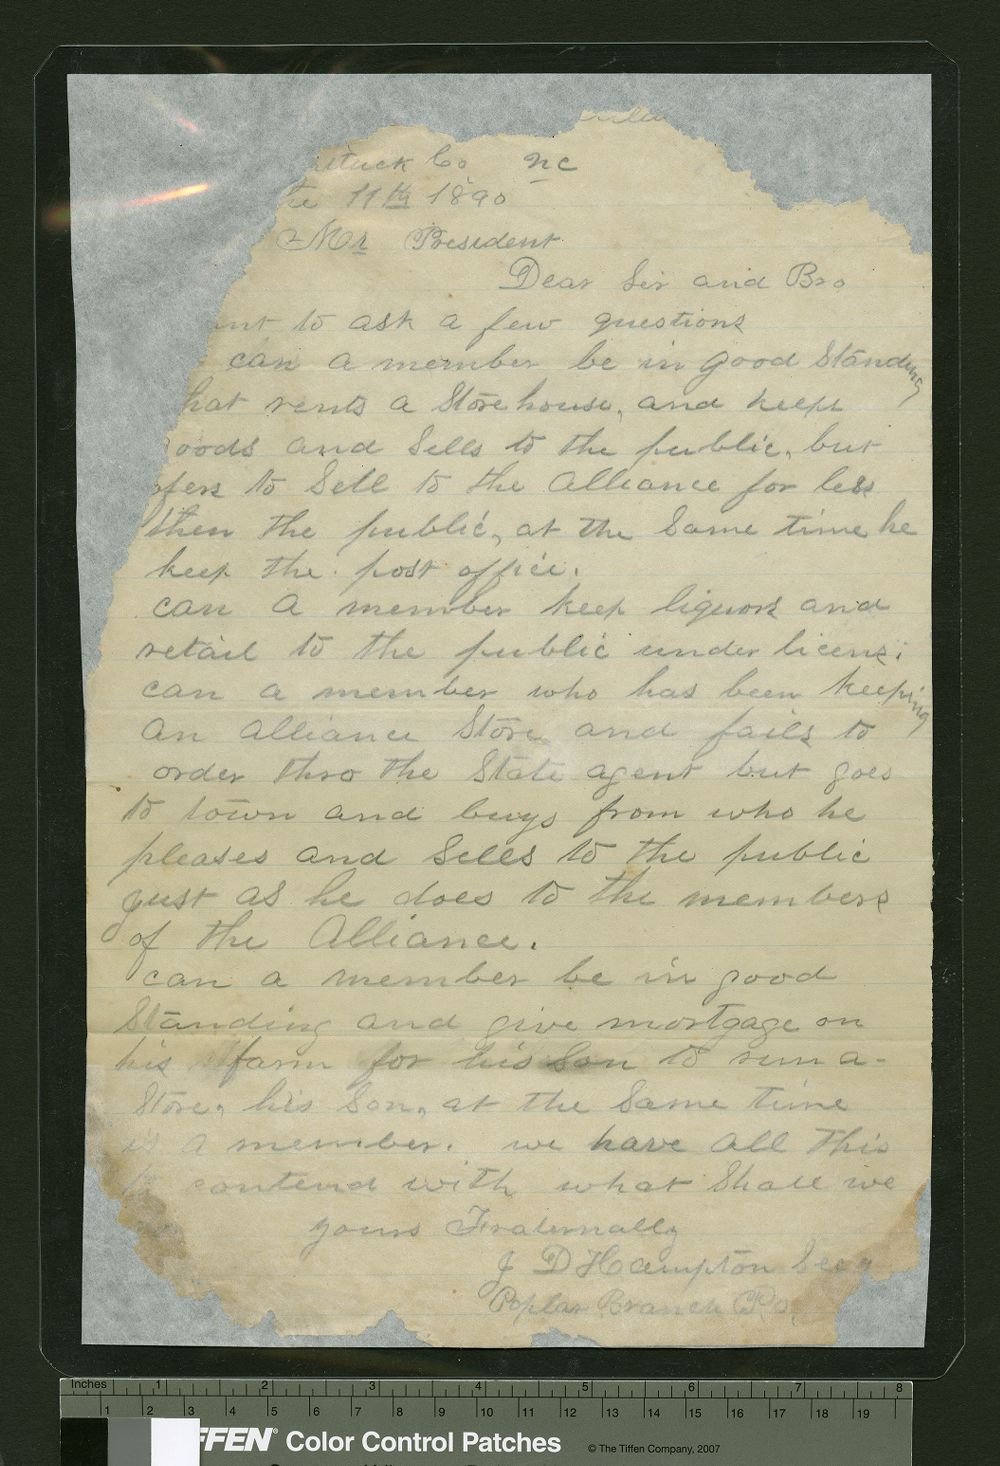 ituck Co NC
the 11th 1890
Mr President
Dear Sir and Bro
ant to ask a few questions
can a member be in good Standing
hat rents a Store house, and keeps
oods and Sells to the public, but
ofers to Sell to the Alliance for less
then the public, at the Same time he
keep the post office.
can a member keep liquors and
retail to the public under licens.
can a member who has been keeping
an alliance Store and fails to
order thro the State agent but goes
to town and buys from who he
pleases and Sells to the public
just as he does to the members
of the Alliance.
can a member be in good
Standing and give mortgage on
his farm for his Son to run a-
Store, his Son, at the Same time
is a member. we have all this
to contend with what Shall we
yours Fraternally
J D Hampton Secy
Poplar Branch P.O.
Inches 1 2 3 4 5 6 7 8
1 2 3 4 5 6 7 8 9 10 11 12 13 14 15 16 17 18 19
FFEN® Color Control Patches © The Tiffen Company, 2007